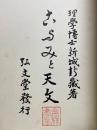 理學博士新城新藏著
こよみと天文
弘文堂發行